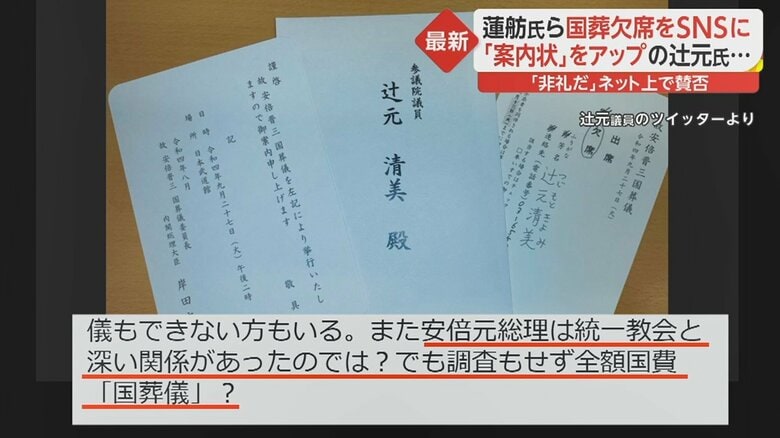 最新
蓮舫氏ら国葬欠席をSNSに
「案内状」をアップの辻元氏…
「非礼だ」ネット上で賛否
辻元議員のツイッターより
謹啓
故安倍晋三国葬儀を左記により挙行いたし
ますので御案内申し上げます
敬具
記
日時 令和四年九月二十七日(火)午後二時
場所 日本武道館
令和四年八月
故安倍晋三国葬儀委員長
内閣総理大臣 岸田
参議院議員
辻元 清美 殿
故安倍晋三国葬儀
令和四年九月二十七日(火)
出席
欠席
ふりがな つじもときよみ
辻元清美
儀もできない方もいる。また安倍元総理は統一教会と
深い関係があったのでは？でも調査もせず全額国費
「国葬儀」？